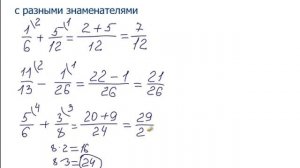 с разными знаменателями
1/6 \2 + 5/12 \1 = 2+5/12 = 7/12
11/13 \2 - 1/26 \1 = 22-1/26 = 21/26
5/6 \4 + 3/8 \3 = 20+9/24 = 29/2
8·2=16
8·3=24